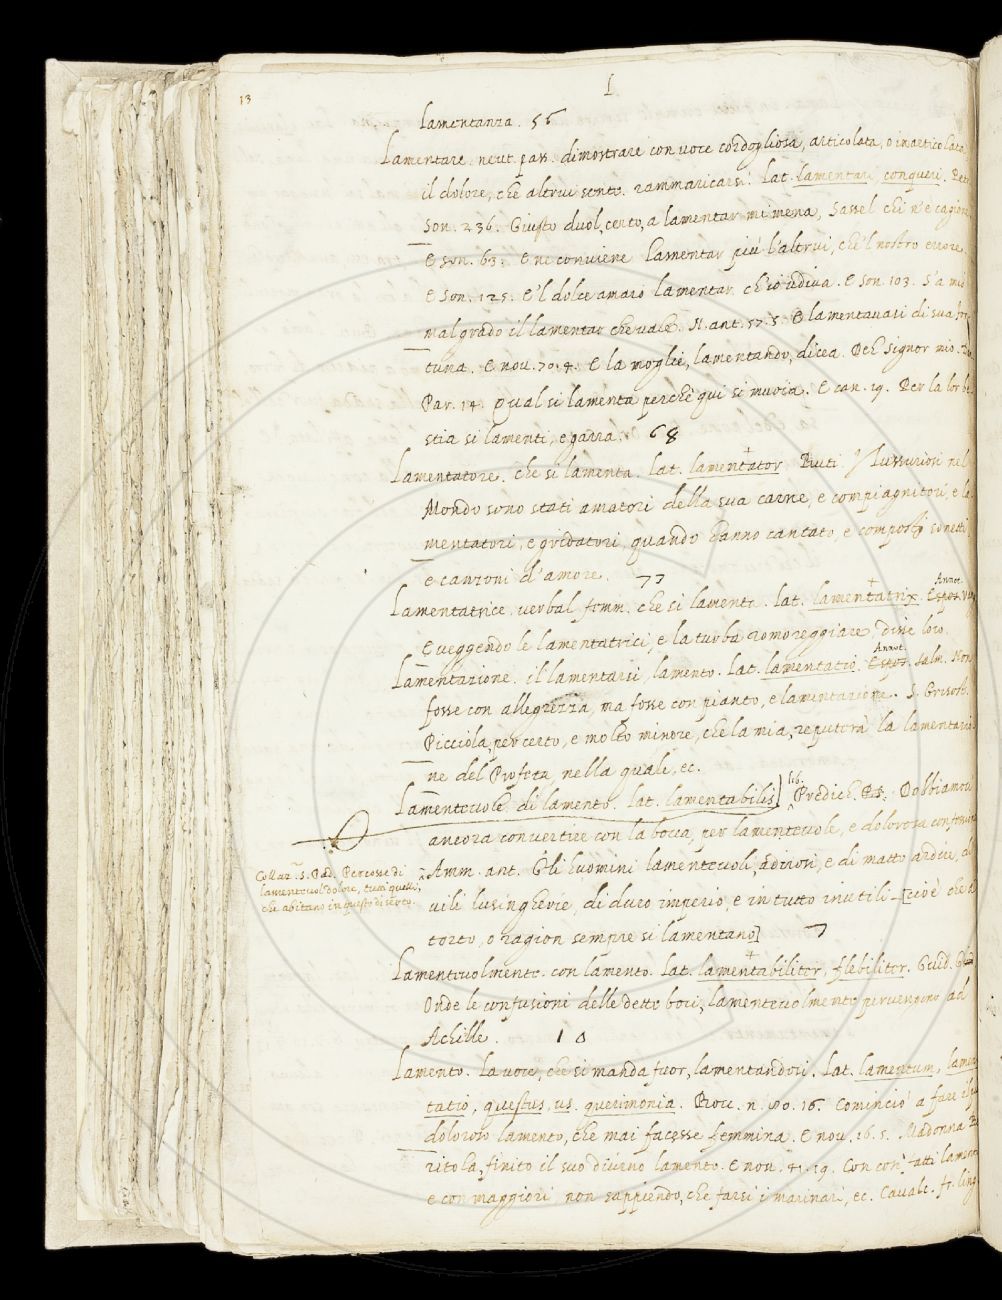 13
L
Lamentanza. 56
Lamentare. neut. pass. dimostrare con voce cordogliosa, articolata, o inarticolata
il dolore, che altrui sente. rammaricarsi. Lat. lamentari, conqueri. Petr
son. 236. Giusto duol, certo, a lamentar mi mena, Sassel chi n'è cagion
E son. 63. E ne conviene Lamentar più l'altrui, che'l nostro errore
E son. 125. E'l dolce amaro lamentar ch'io udiva. E son. 103. S'a mio
malgrado il lamentar che vale. N. ant. 57. 5. E lamentavasi di sua for
tuna. E nov. 70. 4. E la moglie, lamentando, dicea. Deh Signor mio.
Par. 14. Qual si lamenta perchè qui si muoia. E can. 19. Per la lor be
stia si lamenti, e garra. 68
Lamentatore. che si lamenta. Lat. lamentator Lussuriosi nel
Mondo sono stati amatori della sua carne, e compiagnitori, e la
mentatori, e gridatori, quando hanno cantato, e composti sonetti,
e canzoni d'amore. 77
Lamentatrice. verbal. femm. che si lamenta. Lat. lamentatrix. Annot.
E veggendo le lamentatrici, e la turba romoreggiare, disse loro
Lamentazione. il lamentarsi, lamento. Lat. lamentatio. Annot. salm. Non
fosse con allegrezza, ma fosse con pianto, e lamentazione. S. Grisost.
Picciola, per certo, e molto minore, che la mia, reputerà la lamentazio
ne del Profeta, nella quale, ec.
Lamentevole. di lamento. Lat. lamentabilis] Predich. Dobbiamoci
ancora convertire con la bocca, per lamentevole, e dolorosa confessione
Collaz. S. Pad. Percosse di
lamentevol dolore, tutti quelli,
che abitano in questo diserto.
Amm. ant. Gli huomini lamentevoli, adirosi, e di matto ardire, ad
vili lusingherie, di duro imperio, e in tutto inutili [cioè che a
torto, o ragion sempre si lamentano] 7
Lamentevolmente. con lamento. Lat. lamentabiliter, flebiliter. Guid. G.
Onde le confusioni delle dette boci, lamentevolmente pervengono ad
Achille. 10
Lamento. La voce, che si manda fuor, lamentandosi. Lat. lamentum, lamen
tatio, questus, us. querimonia. Bocc. n. 80. 16. Cominciò a fare il più
doloroso lamento, che mai facesse femmina. E nov. 16. 5. Madonna Be
ritola, finito il suo diurno lamento. E nov. 41. 19. Con così fatti lamenti
e con maggiori non sappiendo, che farsi i marinari, ec. Cavalc. fr. ling